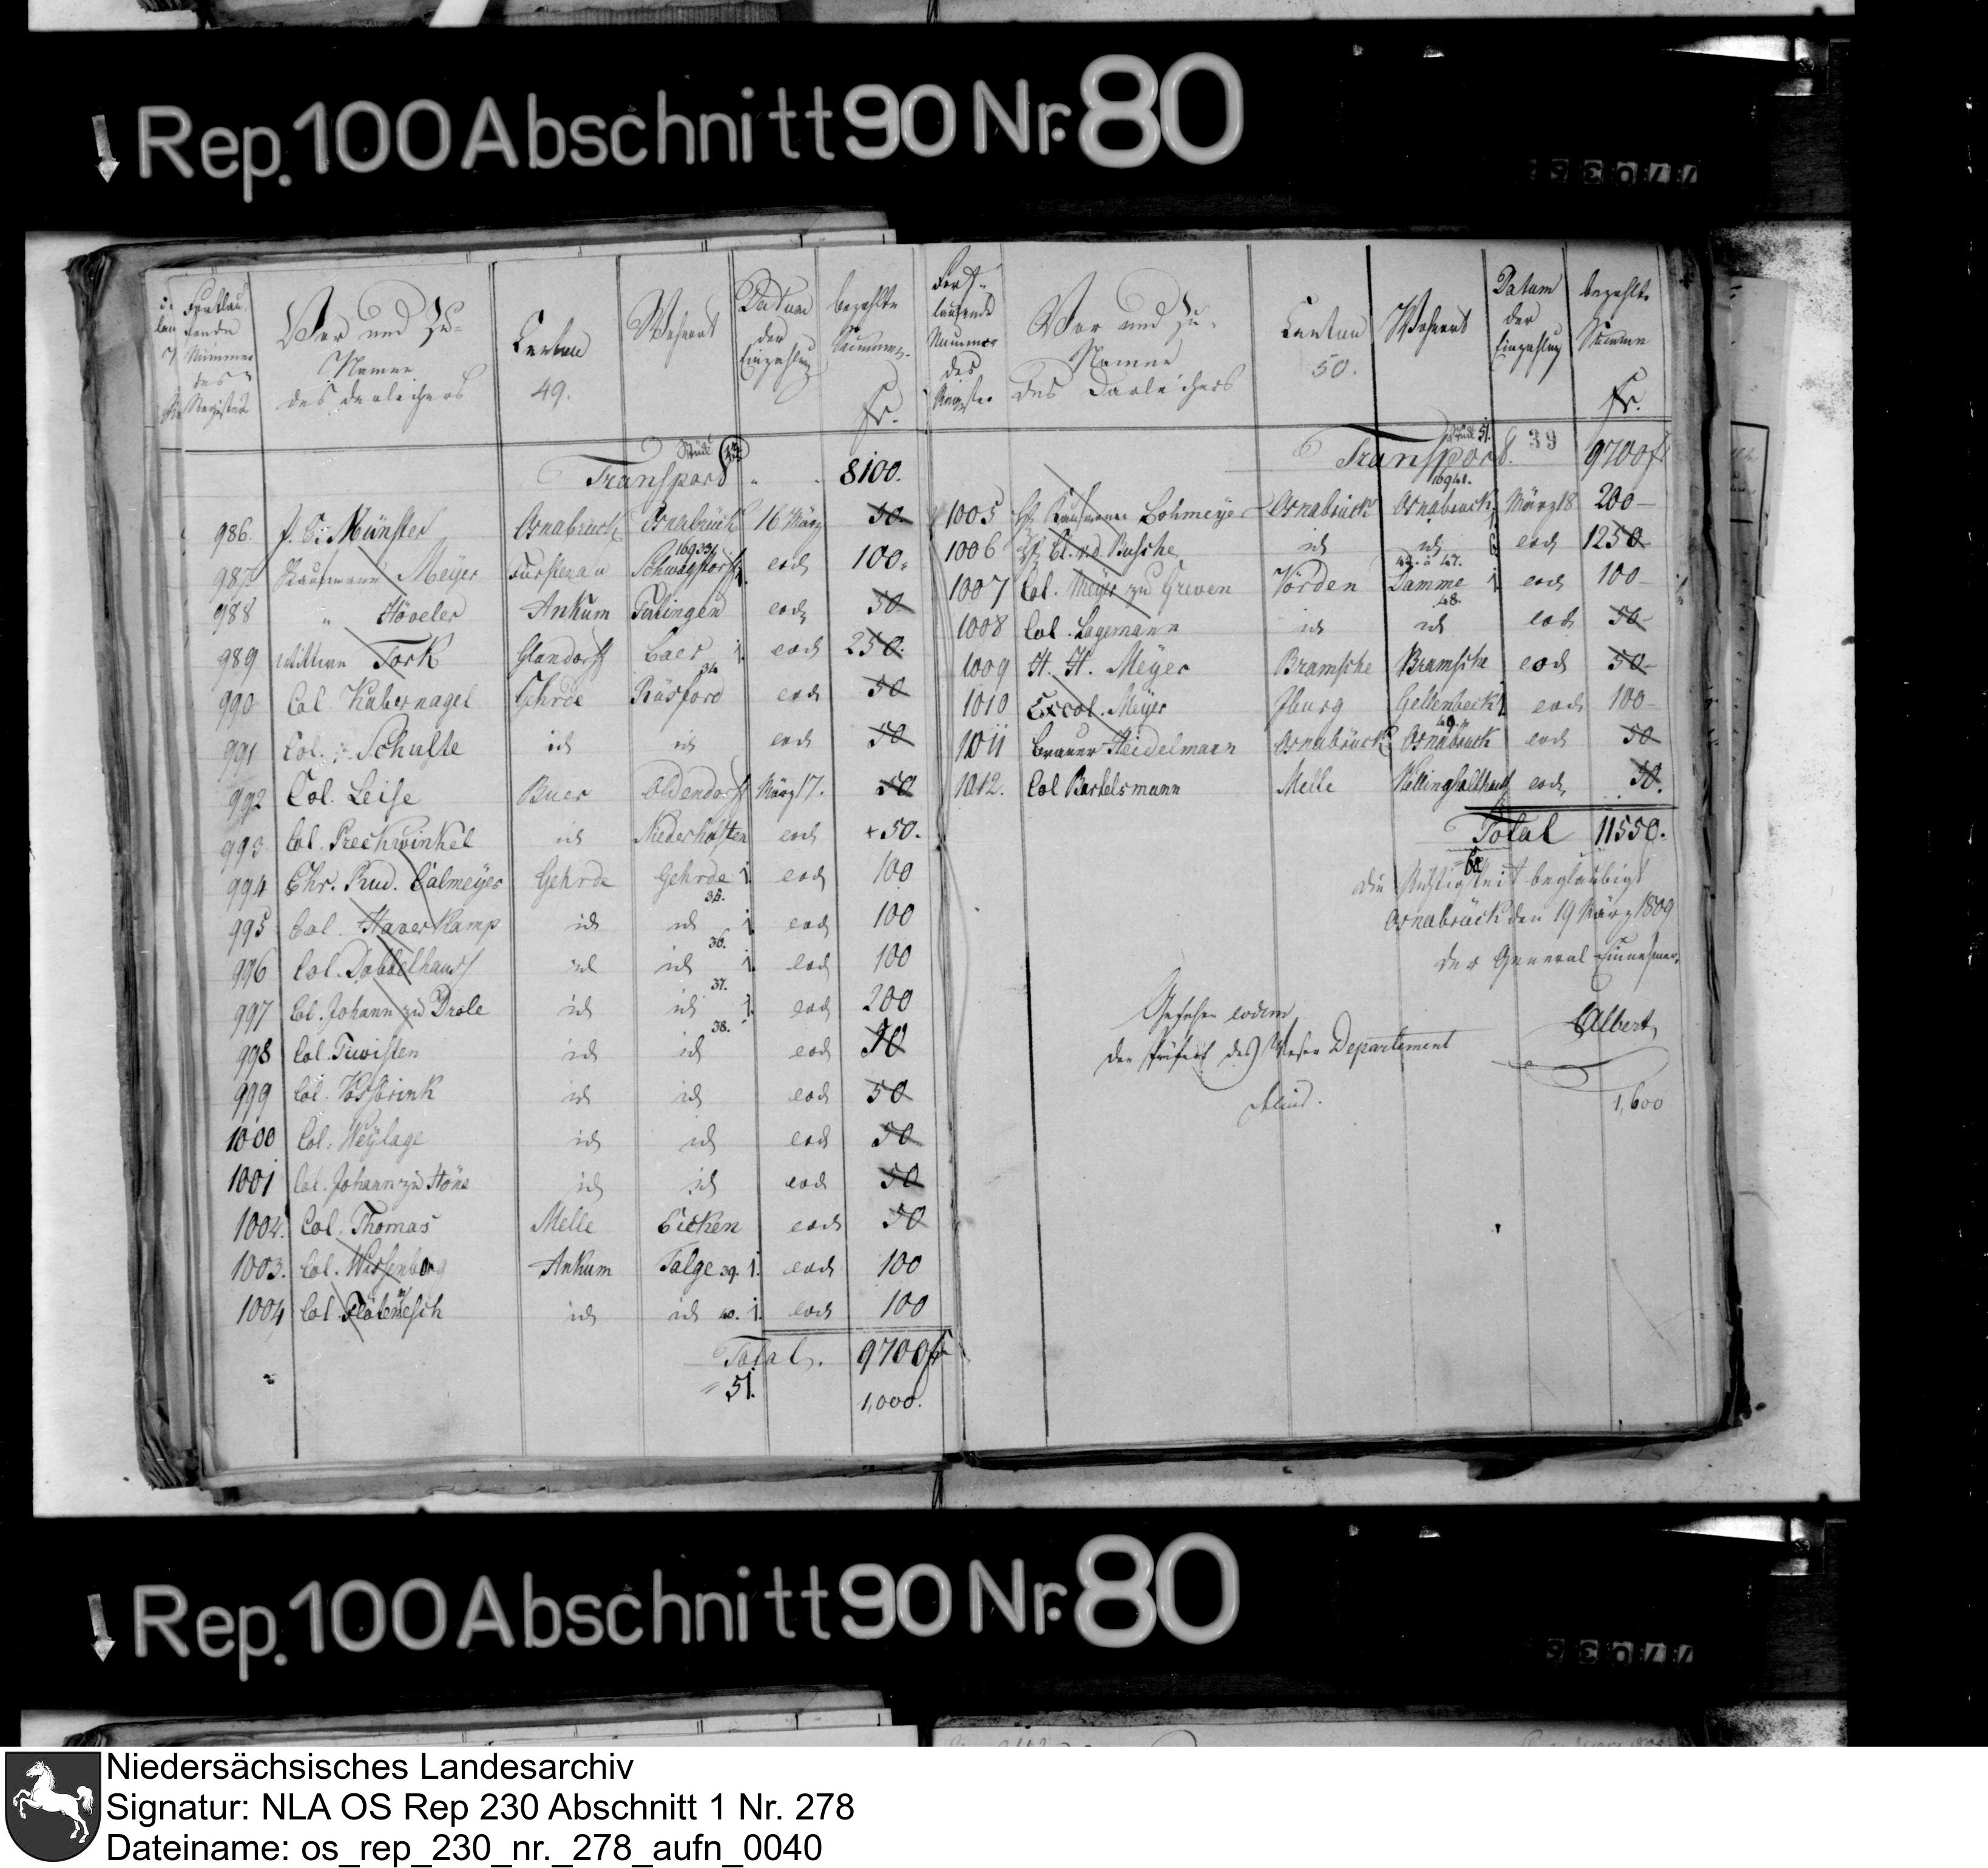 Rep. 100 Abschnitt 90 Nr. 80
Fortlaufende Nummer des Registers
Vor und Zu-
Namen
des Darleihers
Canton
49.
Wohnort
Datum
der
Einzahlung
bezahlte
Summe
fr.
Transport 8100.
986. Münster Osnabrück Osnabrück 16 März 50.
987 Kaufmann Meyer Fürstenau Schwagstorff eod 100.
988 " Höveler Ankum eod 50
989 Wittwe Tork Glandorff Laer 1. eod 250.
34
990 Col. Habernagel Gehrde Rüsford eod 50
991 Col. Schulte id id eod 50
992 Col. Leise Buer Oldendorf März 17. 50
993. Col. Preckwinkel id Niederholsten eod + 50.
994 Chr. Rud. Calmeyer Gehrde Gehrde 1. eod 100
35.
995 Col. Haverkamp id id 1. eod 100
36.
996 Col. Dobbelhauss id id 1. eod 100
37.
997 Col. Johann zu Drele id id 1. eod 200
38.
998 Col. Twisten id id eod 50
999 Col. Vossbrink id id eod 50
1000 Col. Weylage id id eod 50
1001 Col. Johann zu Höne id id eod 50
1002. Col. Thomas Melle Eicken eod 50
1003. Col. Wissenborg Ankum Talge 39. 1. eod 100
1004 Col. id id 40. 1. eod 100
Total. 9700 fr
51. 1,000.
Fortlaufende Nummer des Registers
Vor und Zu-
Namen
des Darleihers
Canton
50.
Wohnort
Datum
der
Einzahlung
bezahlte
Summe
fr.
Transport. 39 9700 fr
1005 Kaufmann Lohmeyer Osnabrück Osnabrück März 18 200 -
1006 v. d. Busche id id eod 1250
42. a 47.
1007 Col. Meyer zu Greven Vörden Damme 1 eod 100 -
48.
1008 Col. Lagemann id id eod 50 -
1009 H. H. Meyer Bramsche Bramsche eod 50 -
1010 Col. Meyer Iburg Gellenbeck 1 eod 100 -
49.
1011 Brauer Heidelmann Osnabrück Osnabrück eod 50
1012. Col Bartelsmann Melle eod 50.
Total 11550.
Die Richtigkeit beglaubigt
Osnabrück den 19 März 1809
der General Einnehmer.
Albert
Gesehen eodem
der Präfect des Weser Departement
1,600
Rep. 100 Abschnitt 90 Nr. 80
Niedersächsisches Landesarchiv
Signatur: NLA OS Rep 230 Abschnitt 1 Nr. 278
Dateiname: os_rep_230_nr._278_aufn_0040